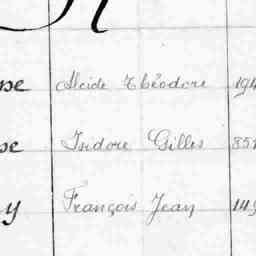 se Alcide Théodore 194
se Isidore Gilles 851
y François Jean 149